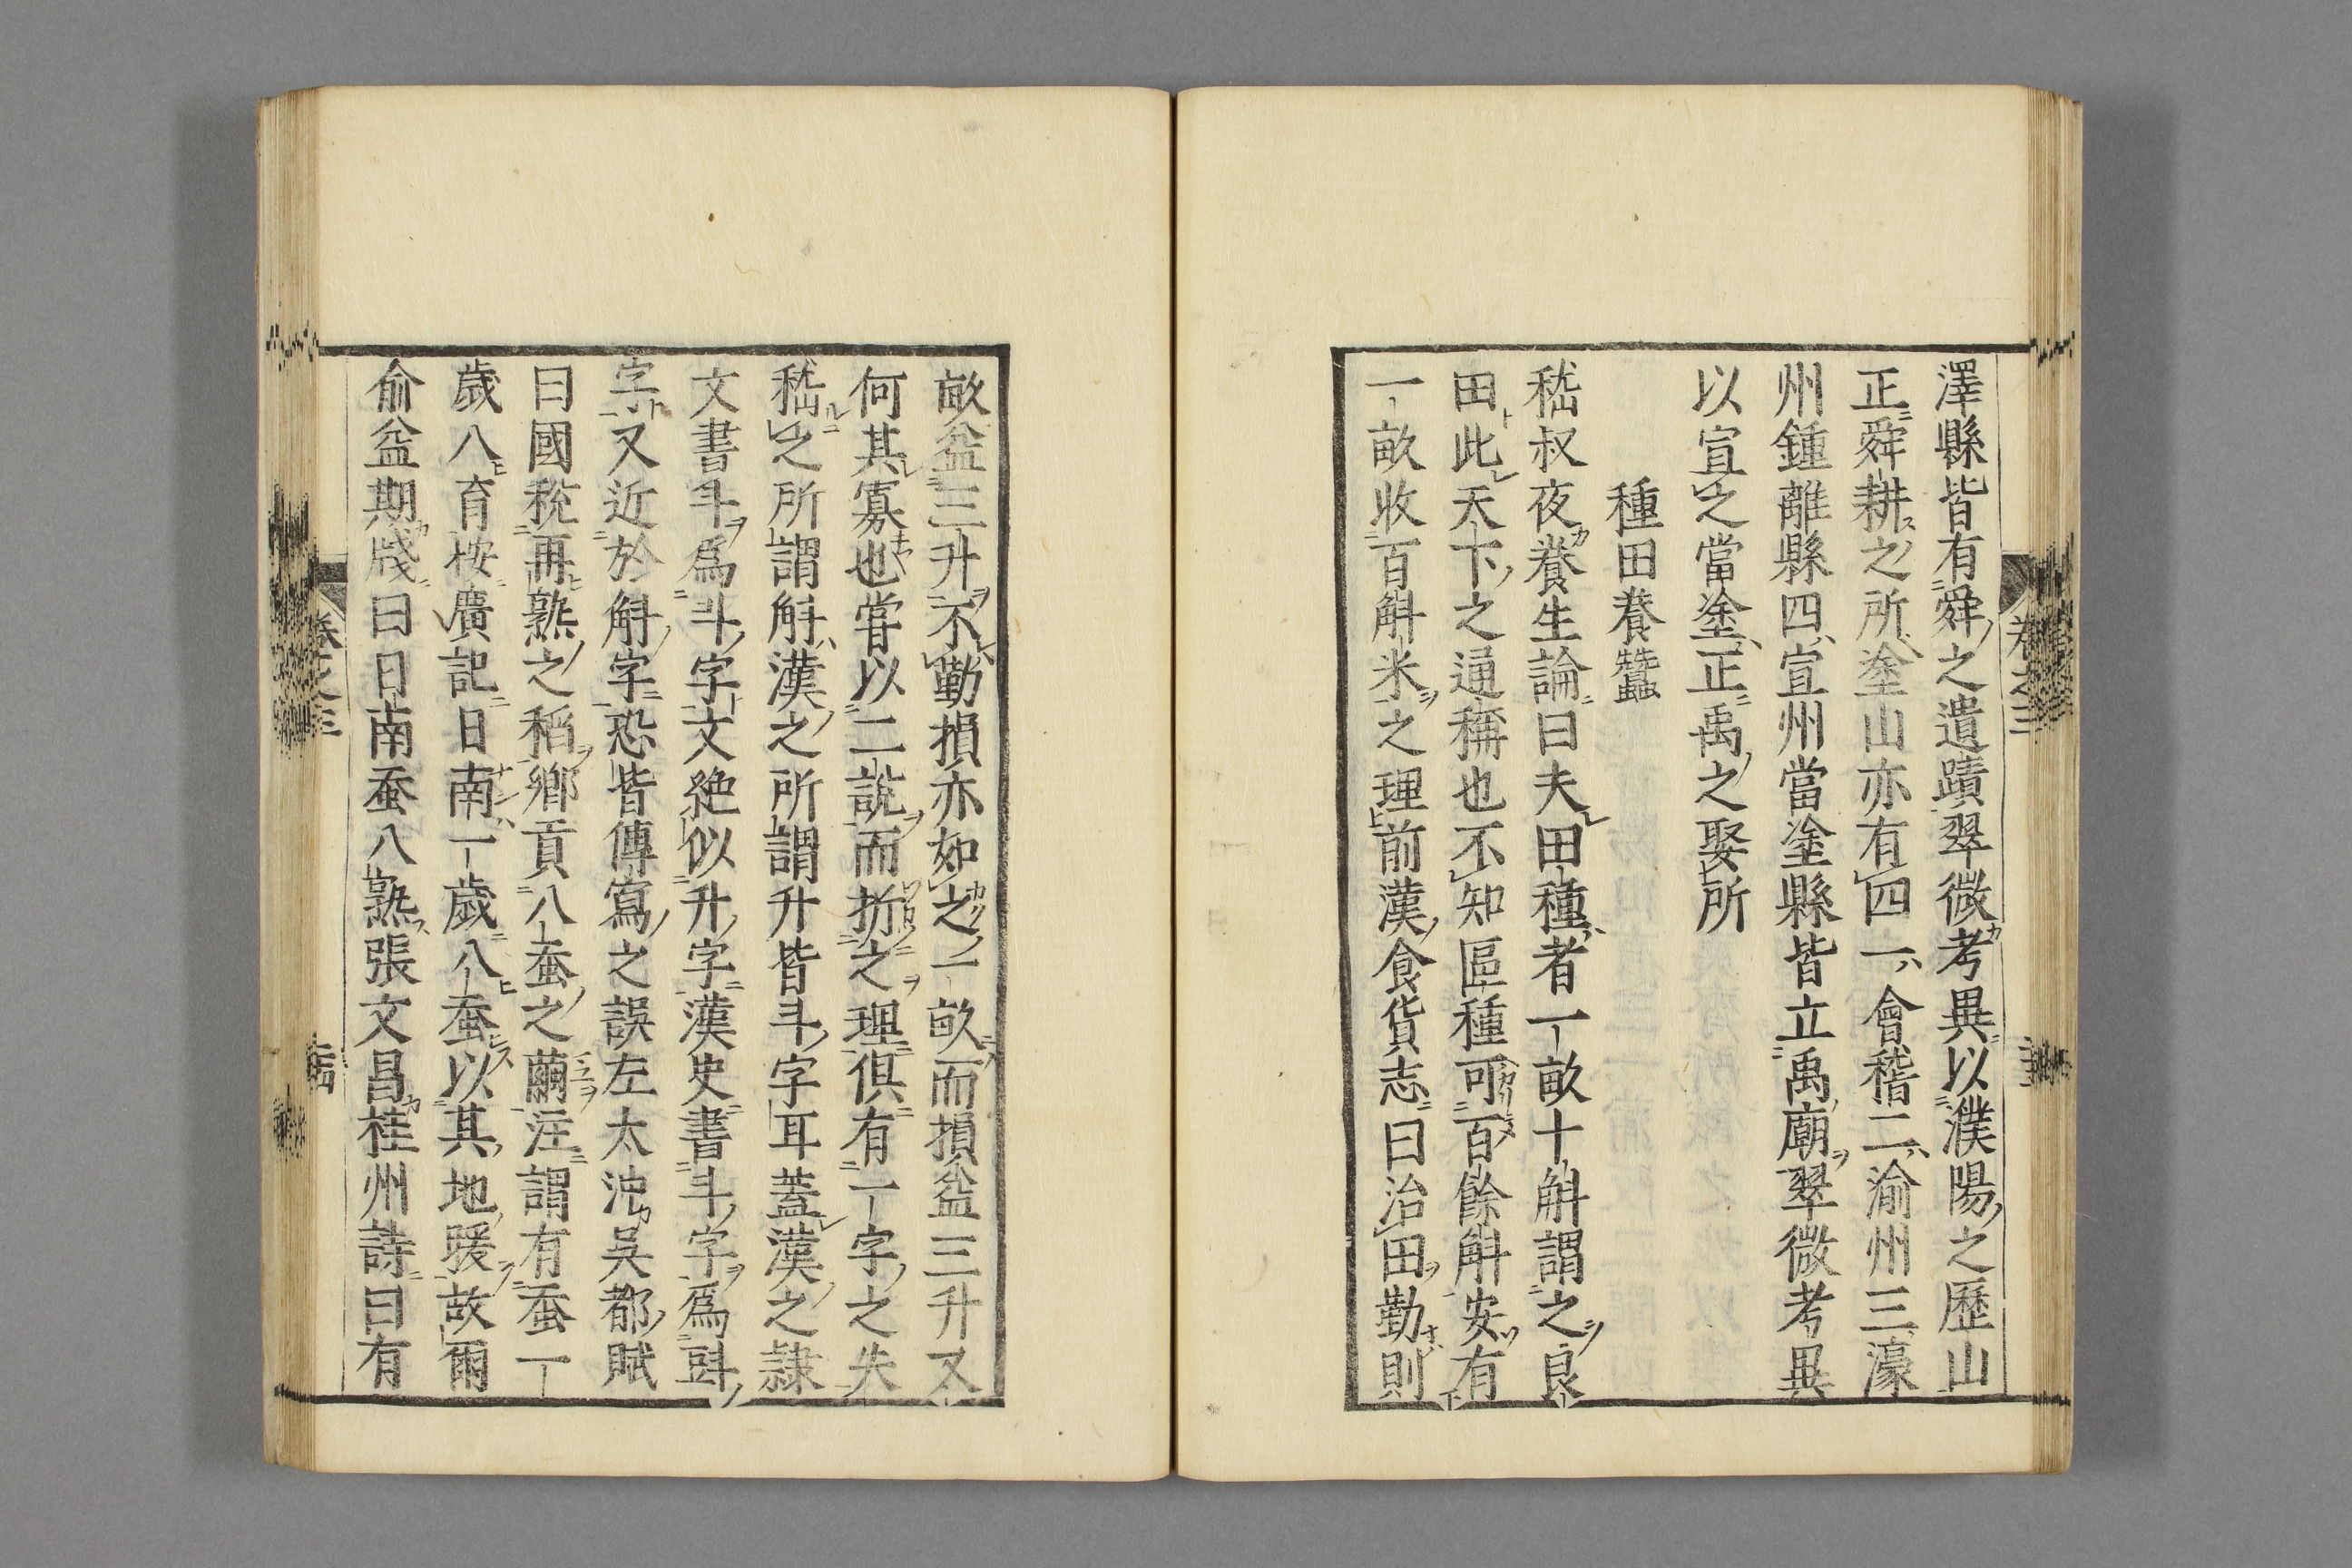 澤縣皆有舜之遺蹟翠微考異以濮陽之歷山
正舜耕之所塗山亦有四一會稽二渝州三濠
州鍾離縣四宣州當塗縣皆立禹廟翠微考異
以宣之當塗正禹之娶所
種田養蠶
嵇叔夜養生論曰夫田種者一畝十斛謂之良
田此天下之通稱也不知區種可百餘斛安有
一畝收百斛米之理前漢食貨志曰治田勤則
畝益三升不勤損亦如之一畝而損益三升又
何其寡也嘗以二說而折之理俱有一字之失
嵇之所謂斛漢之所謂升皆斗字耳蓋漢之隷
文書斗爲斗字文絶似升字漢史書斗字爲㪷
字又近於斛字恐皆傳寫之誤左太沖吳都賦
曰國稅再熟之稻鄉貢八蚕之蠒注謂有蚕一
歲八育桉廣記日南一歲八蚕以其地暖故爾
俞益期牋曰日南蚕八熟張文昌桂州詩曰有
卷之三
卷之三